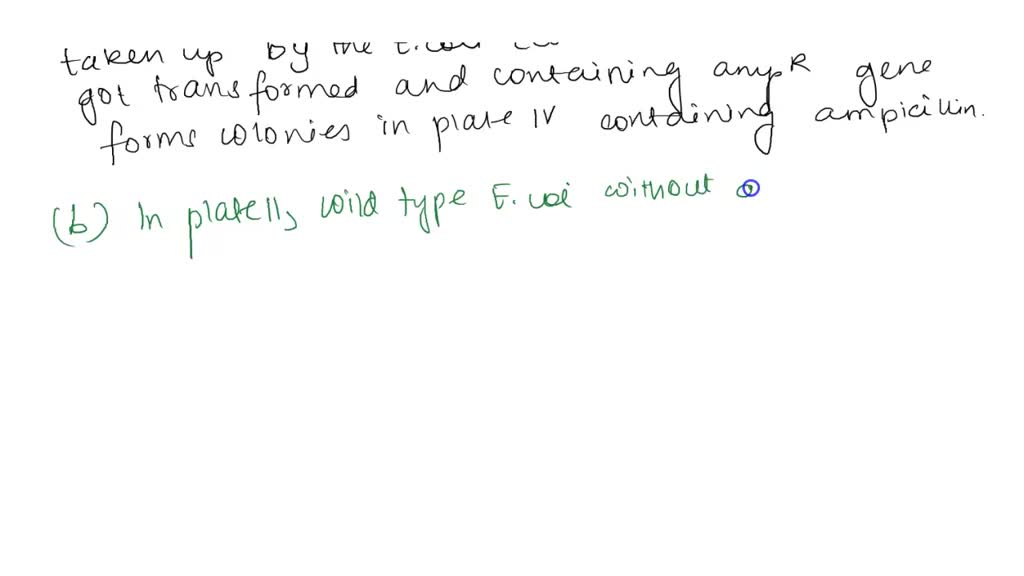 taken up by the E.coli
got transformed and containing ampR gene
forms colonies in plate IV containing ampicillin.
(b) In plate II, wild type E. coli without a